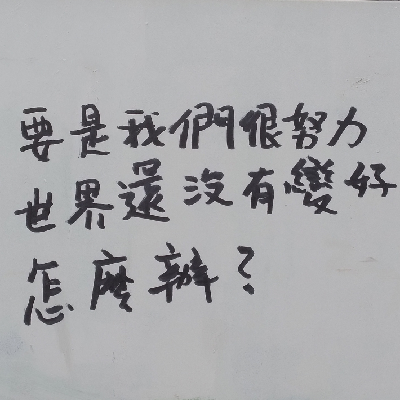 要是我們很努力
世界還沒有變好
怎麼辦？